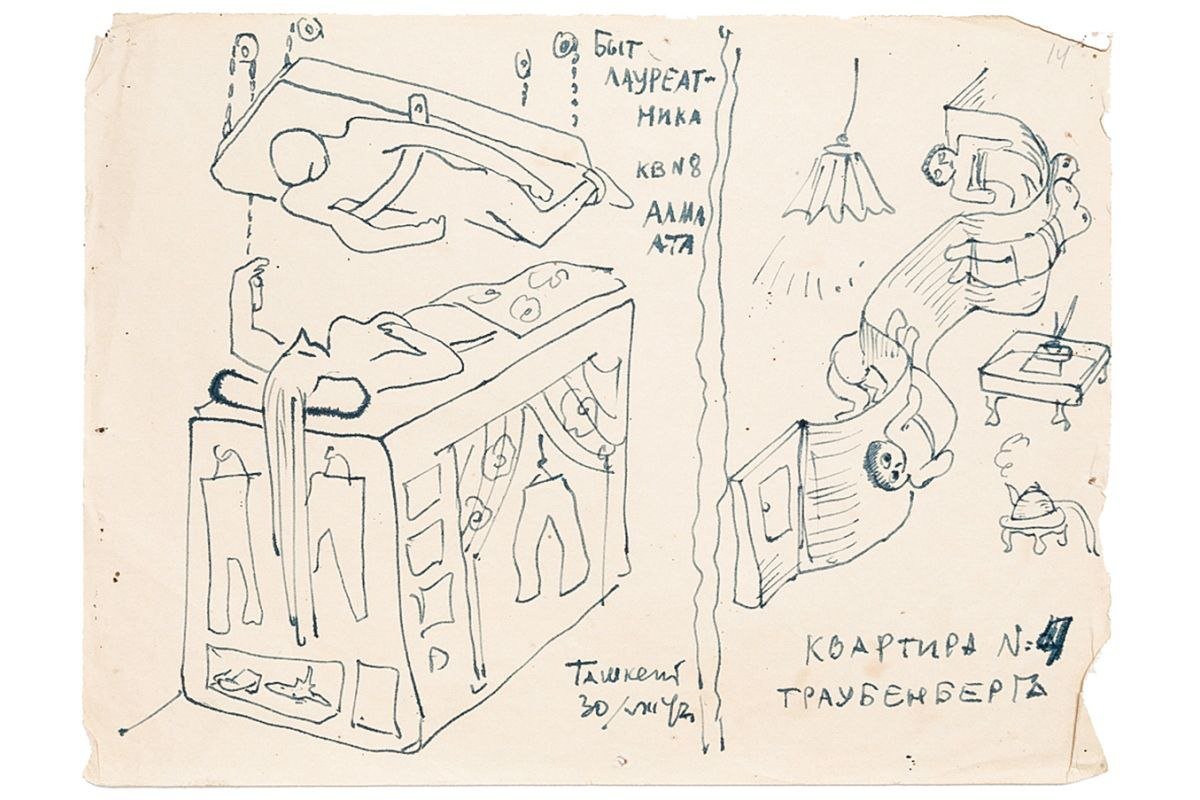 14
БЫТ
ЛАУРЕАТ-
НИКА
КВ N 8
АЛМА
АТА
Ташкент
30/
КВАРТИРА №: 4
ТРАУБЕНБЕРГА